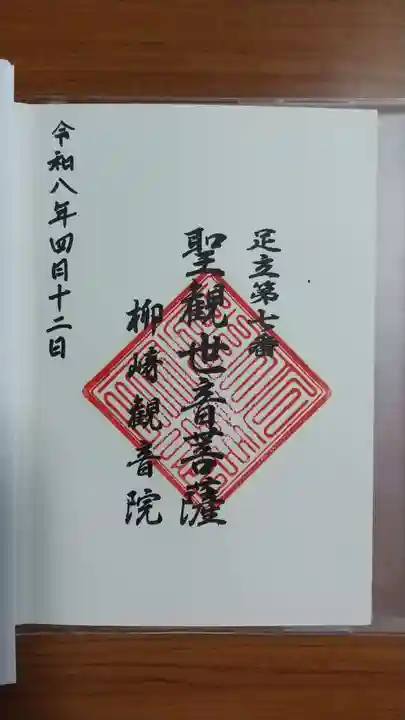 足立第七番
聖観世音菩薩
柳﨑観音院
令和八年四月十二日